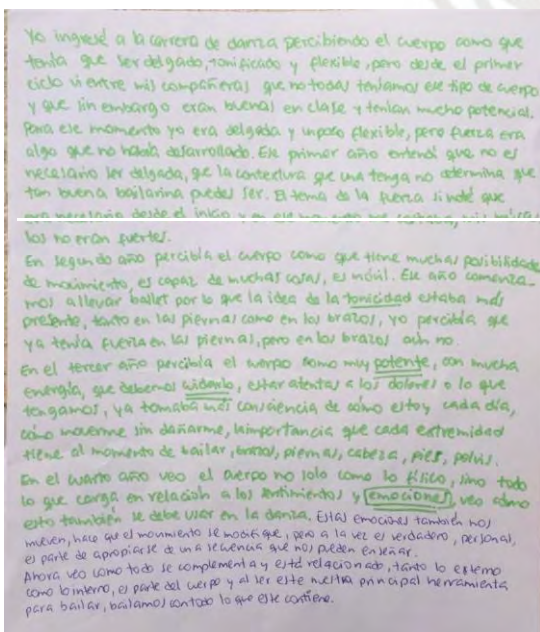 Yo ingresé a la carrera de danza percibiendo el cuerpo como que
tenía que ser delgado, tonificado y flexible, pero desde el primer
ciclo vi entre mis compañeras que no todas teníamos ese tipo de cuerpo
y que sin embargo eran buenas en clase y tenían mucho potencial.
Para ese momento yo era delgada y un poco flexible, pero fuerza era
algo que no había desarrollado. Ese primer año entendí que no es
necesario ser delgada, que la contextura que una tenga no determina que
tan buena bailarina puedes ser. El tema de la fuerza si noté que
era necesario desde el inicio y en ese momento
los no eran fuertes.
En segundo año percibía el cuerpo como que tiene muchas posibilidades
de movimiento, es capaz de muchas cosas, es móvil. Ese año comenza-
mos a llevar ballet por lo que la idea de la tonicidad estaba más
presente, tanto en las piernas como en los brazos, yo percibía que
ya tenía fuerza en las piernas, pero en los brazos aún no.
En el tercer año percibía el cuerpo como muy potente, con mucha
energía, que debemos cuidarlo, estar atentas a los dolores o lo que
tengamos, ya tomaba más consciencia de cómo estoy cada día,
cómo moverme sin dañarme, la importancia que cada extremidad
tiene al momento de bailar, brazos, piernas, cabeza, pies, pelvis.
En el cuarto año veo el cuerpo no solo como lo físico, sino todo
lo que carga en relación a los sentimientos y emociones, veo cómo
esto también se debe usar en la danza. Estas emociones también nos
mueven, hace que el movimiento se modifique, pero a la vez es verdadero, personal,
es parte de apropiarse de una secuencia que nos pueden enseñar.
Ahora veo como todo se complementa y está relacionado, tanto lo externo
como lo interno, es parte del cuerpo y al ser este nuestra principal herramienta
para bailar, bailamos con todo lo que este contiene.